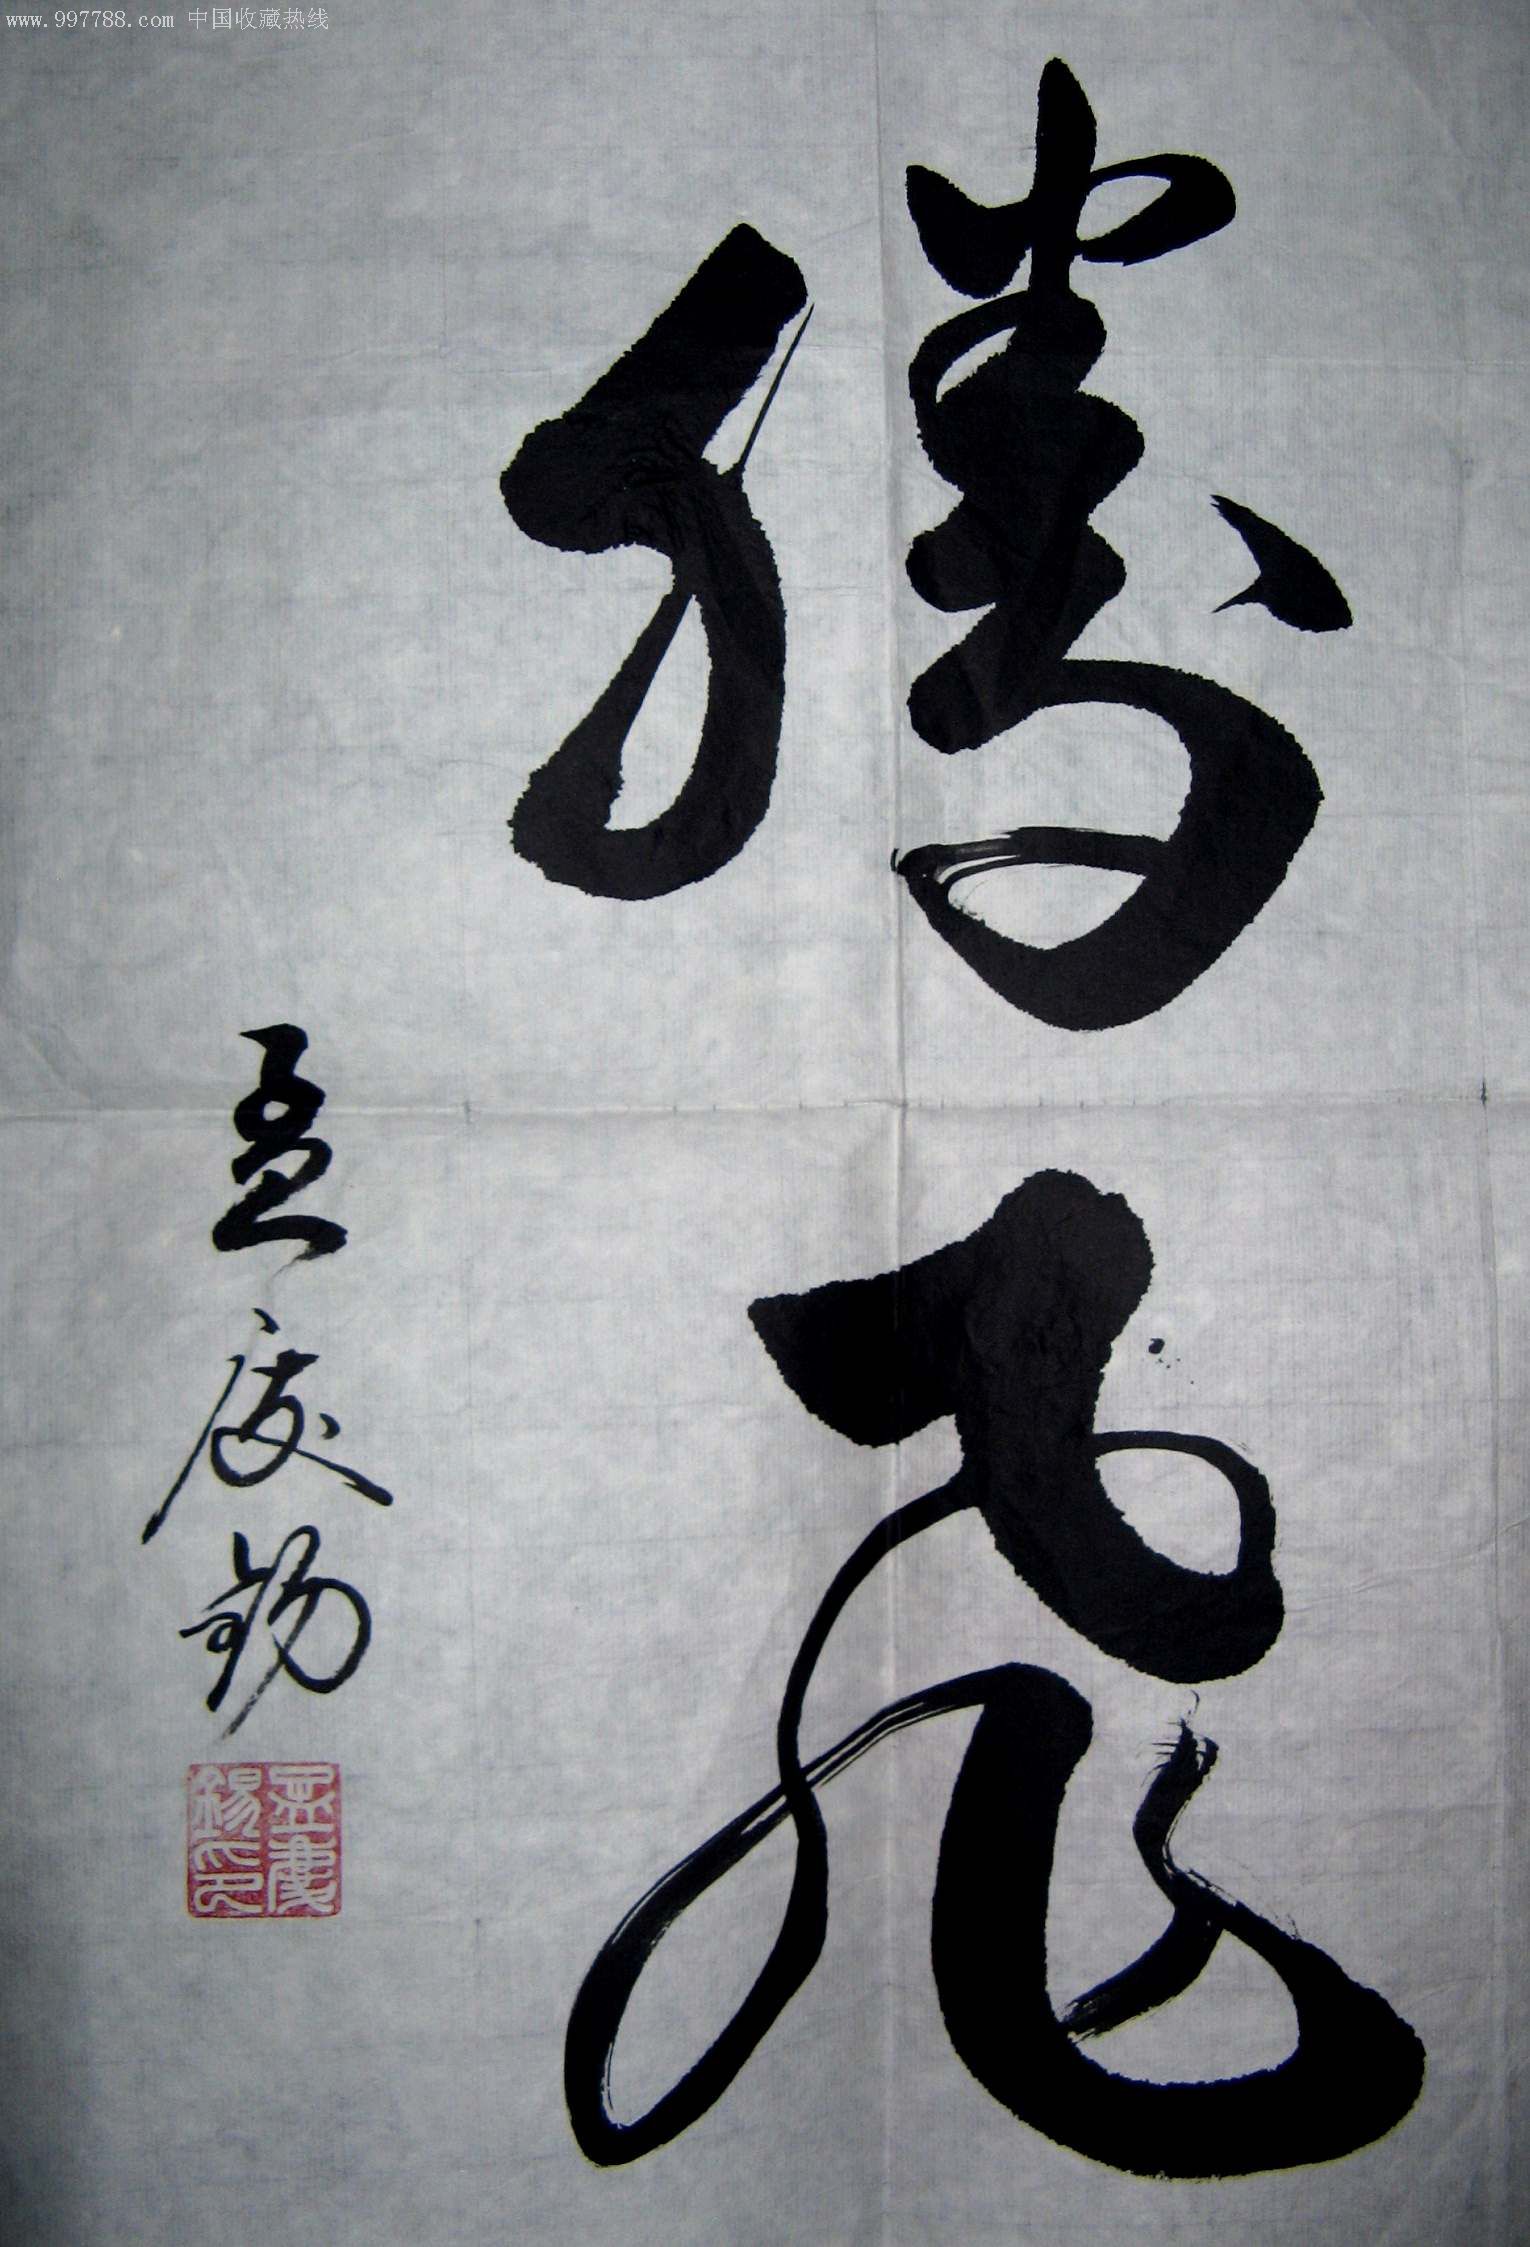 www.997788.com 中国收藏热线
腾飞
孟庆锡
孟庆锡印